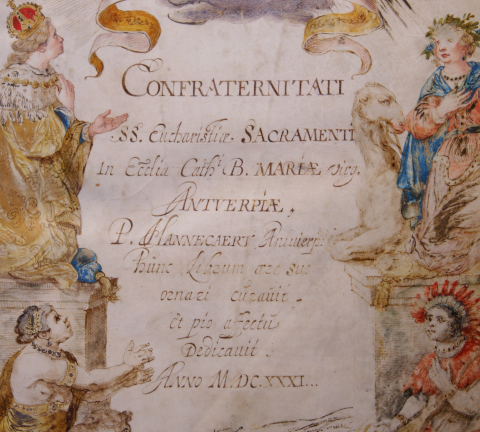 CONFRATERNITATI
SS. Eucharistiæ SACRAMENTI
In Ecclia Cath. B. MARIÆ virg.
ANTVERPIÆ.
P. HANNECAERT Antuerp
hunc Librum ære suo
ornari curavit.
et pio affectu
Dedicavit.
ANNO M.DC.XXXI...